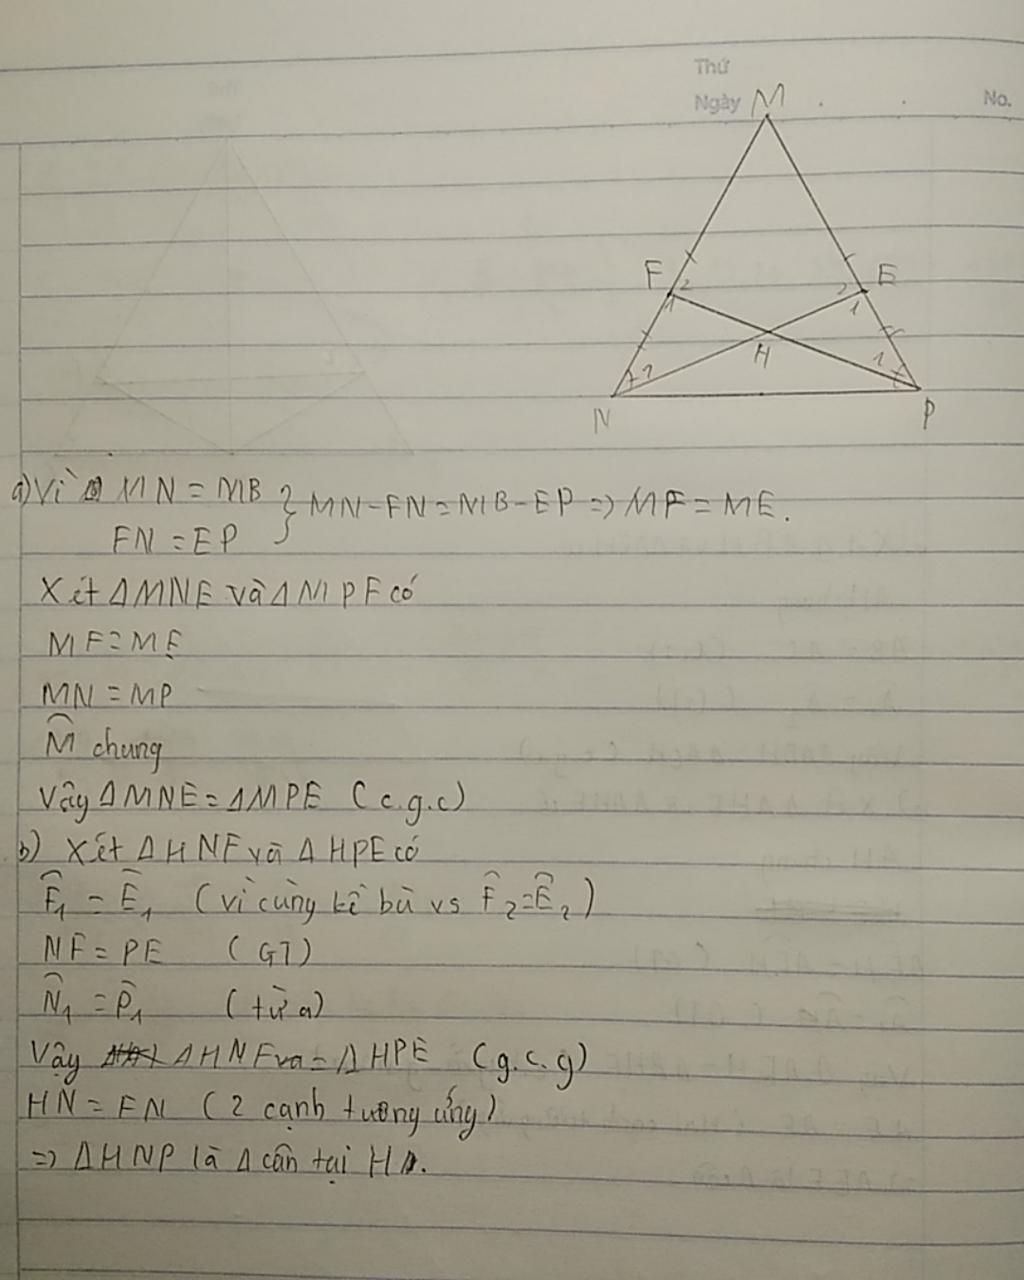 Thứ
Ngày
No.
M
F 2 2 E
1 1
H
1 1
N P
a) Vì MN = MB } MN - FN = MB - EP => MF = ME.
FN = EP
Xét ΔMNE và ΔMPF có
MF = ME
MN = MP
M̂ chung
Vậy ΔMNE = ΔMPE (c.g.c)
b) Xét ΔHNF và ΔHPE có
F̂₁ = Ê₁ (vì cùng kề bù vs F̂₂ = Ê₂)
NF = PE (GT)
N̂₁ = P̂₁ (từ a)
Vậy ΔHNF va = ΔHPE (g.c.g)
HN = FN (2 cạnh tương ứng)
=> ΔHNP là Δ cân tại H.